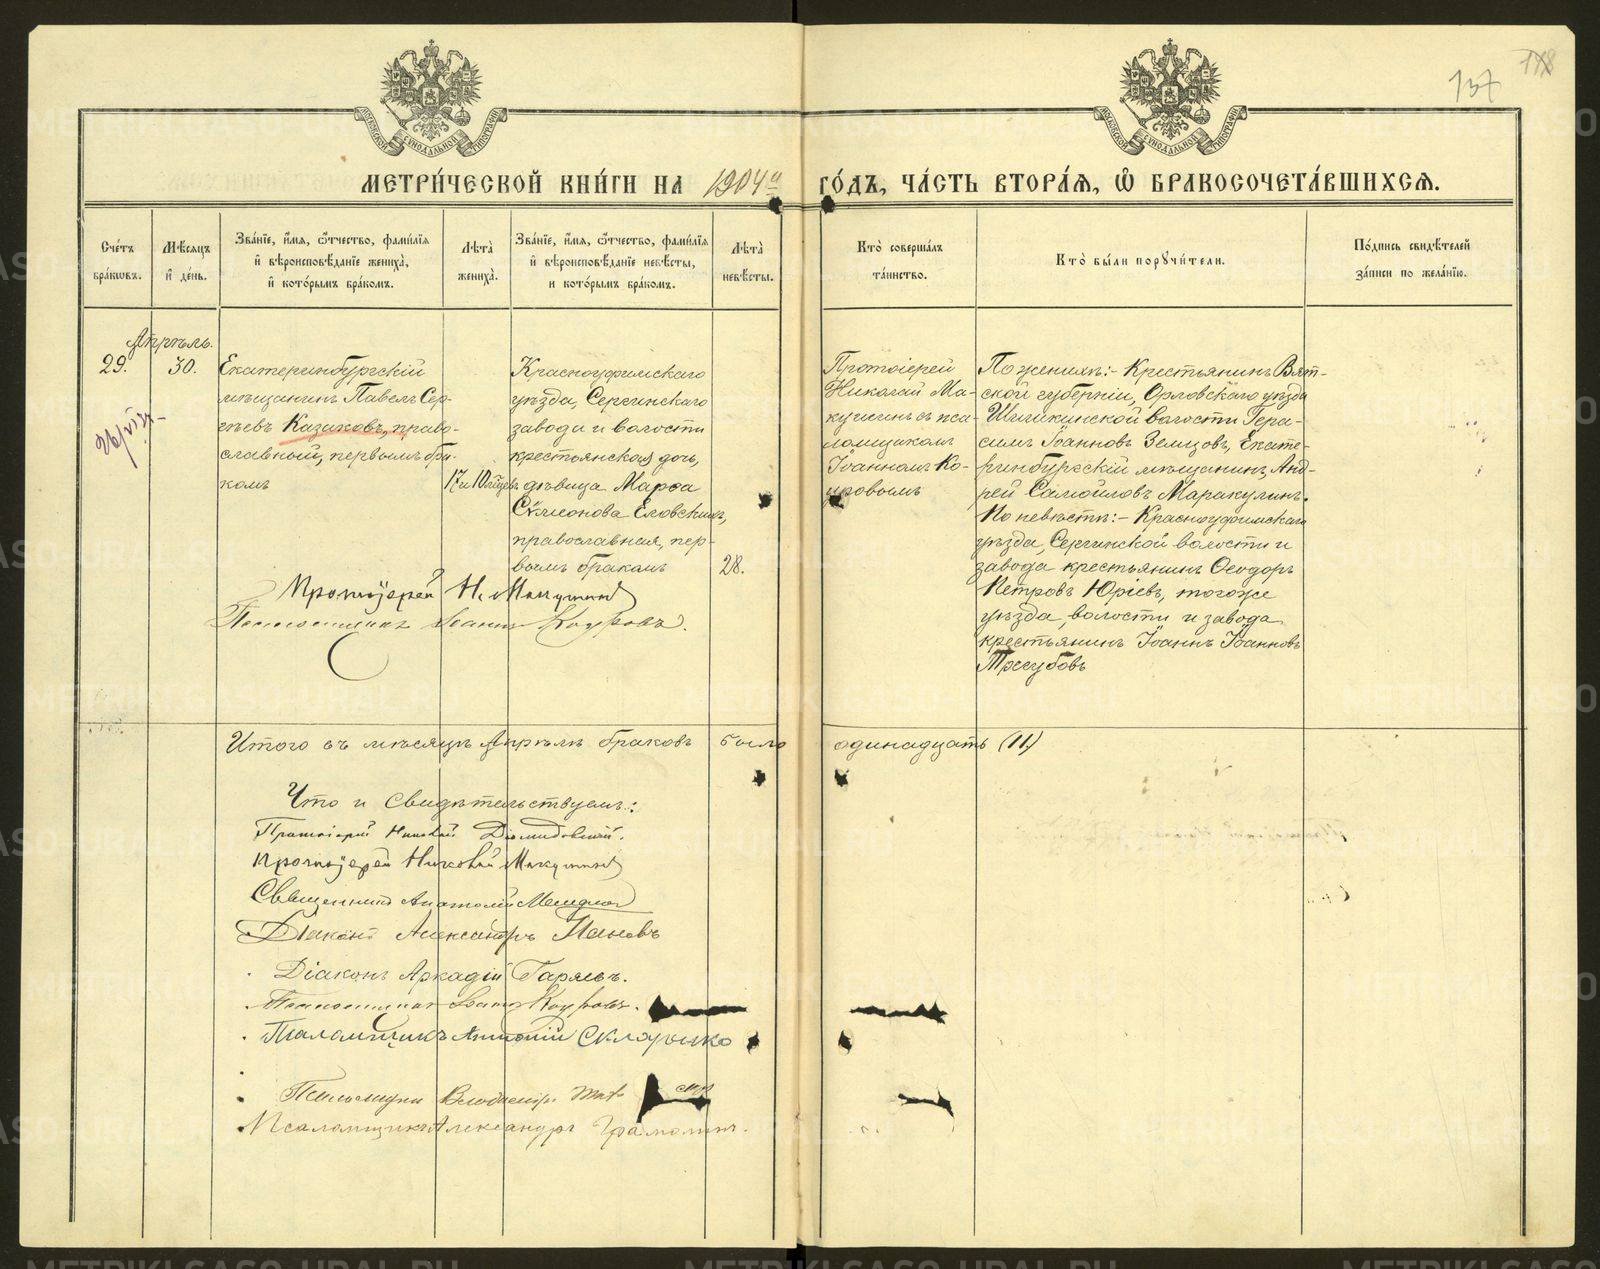 137
118
МЕТРИ́ЧЕСКОЙ КНИ́ГИ НА 1904й ГО́ДЪ, ЧА́СТЬ ВТОРА́Я, Ѡ БРАКОСОЧЕТА́ВШИХСЯ.
Сче́тъ бра́кѡвъ.
Мѣ́сяцъ и҆ де́нь.
Зва́нїе, и҆́мя, ѻ҆́тчество, фами́лїя и҆ вѣроисповѣ́данїе жениха̀, и҆ кото́рымъ бра́комъ.
Лѣ́та жениха̀.
Зва́нїе, и҆́мя, ѻ҆́тчество, фами́лїя и҆ вѣроисповѣ́данїе невѣ́сты, и кото́рымъ бра́комъ.
Лѣ́та невѣ́сты.
Кто̀ соверша́лъ та́инство.
Кто̀ бы́ли порꙋчи́тели.
По́дпись свидѣ́телей за́писи по жела́нїю.
Апрѣль.
29.
30.
Екатеринбургскій
мѣщанинъ Павелъ Сер-
гѣевъ Казаковъ, право-
славный, первымъ бра-
комъ
17 и 10 мѣсцевъ
Красноуфимскаго
уѣзда, Сергинскаго
завода и волости
крестьянская дочь,
дѣвица Марѳа
Сѵмеонова Еловскихъ,
православная, пер-
вымъ бракомъ
28.
Протоіерей
Николай Ма-
кушинъ съ пса-
ломщикомъ
Іоанномъ Ко-
уровымъ
По женихѣ:- Крестьянинъ Вят-
ской губерніи, Орловскаго уѣзда
Шишкинской волости Гера-
симъ Іоанновъ Земцовъ, Екате-
ринбургскій мѣщанинъ, Анд-
рей Самойловъ Маракулинъ.
По невѣстѣ:- Красноуфимскаго
уѣзда, Сергинской волости и
завода крестьянинъ Ѳеодоръ
Петровъ Юріевъ, тогоже
уѣзда, волости и завода
крестьянинъ Іоаннъ Іоанновъ
Трегубовъ
Протоіерей Н. Макушинъ
Псаломщикъ Іоаннъ Коуровъ.
Итого въ мѣсяцѣ Апрѣлѣ браковъ было одинадцать (11)
Что и свидѣтельствуемъ:
Протоіерей Николай Діомидовскій.
Протоіерей Николай Макушинъ
Священникъ Анатолій
Діаконъ Александръ Пановъ
Діаконъ Аркадій Гаряевъ.
Псаломщикъ Іоаннъ Коуровъ.
Псаломщикъ Антоній Скляренко
Псаломщикъ Владиміръ
Псаломщикъ Александръ Грамолинъ.
METRIKI.GASO-URAL.RU